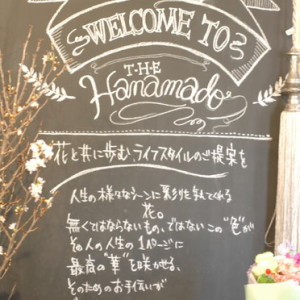 WELCOME TO
THE
Hanamado
花と共に歩むライフスタイルのご提案を
人生の様々なシーンに彩りを与えてくれる
花。
無くてはならないもの、ではないこの"色"が
その人の人生の1ページに
最高の"華"を咲かせる、
そのためのお手伝いが